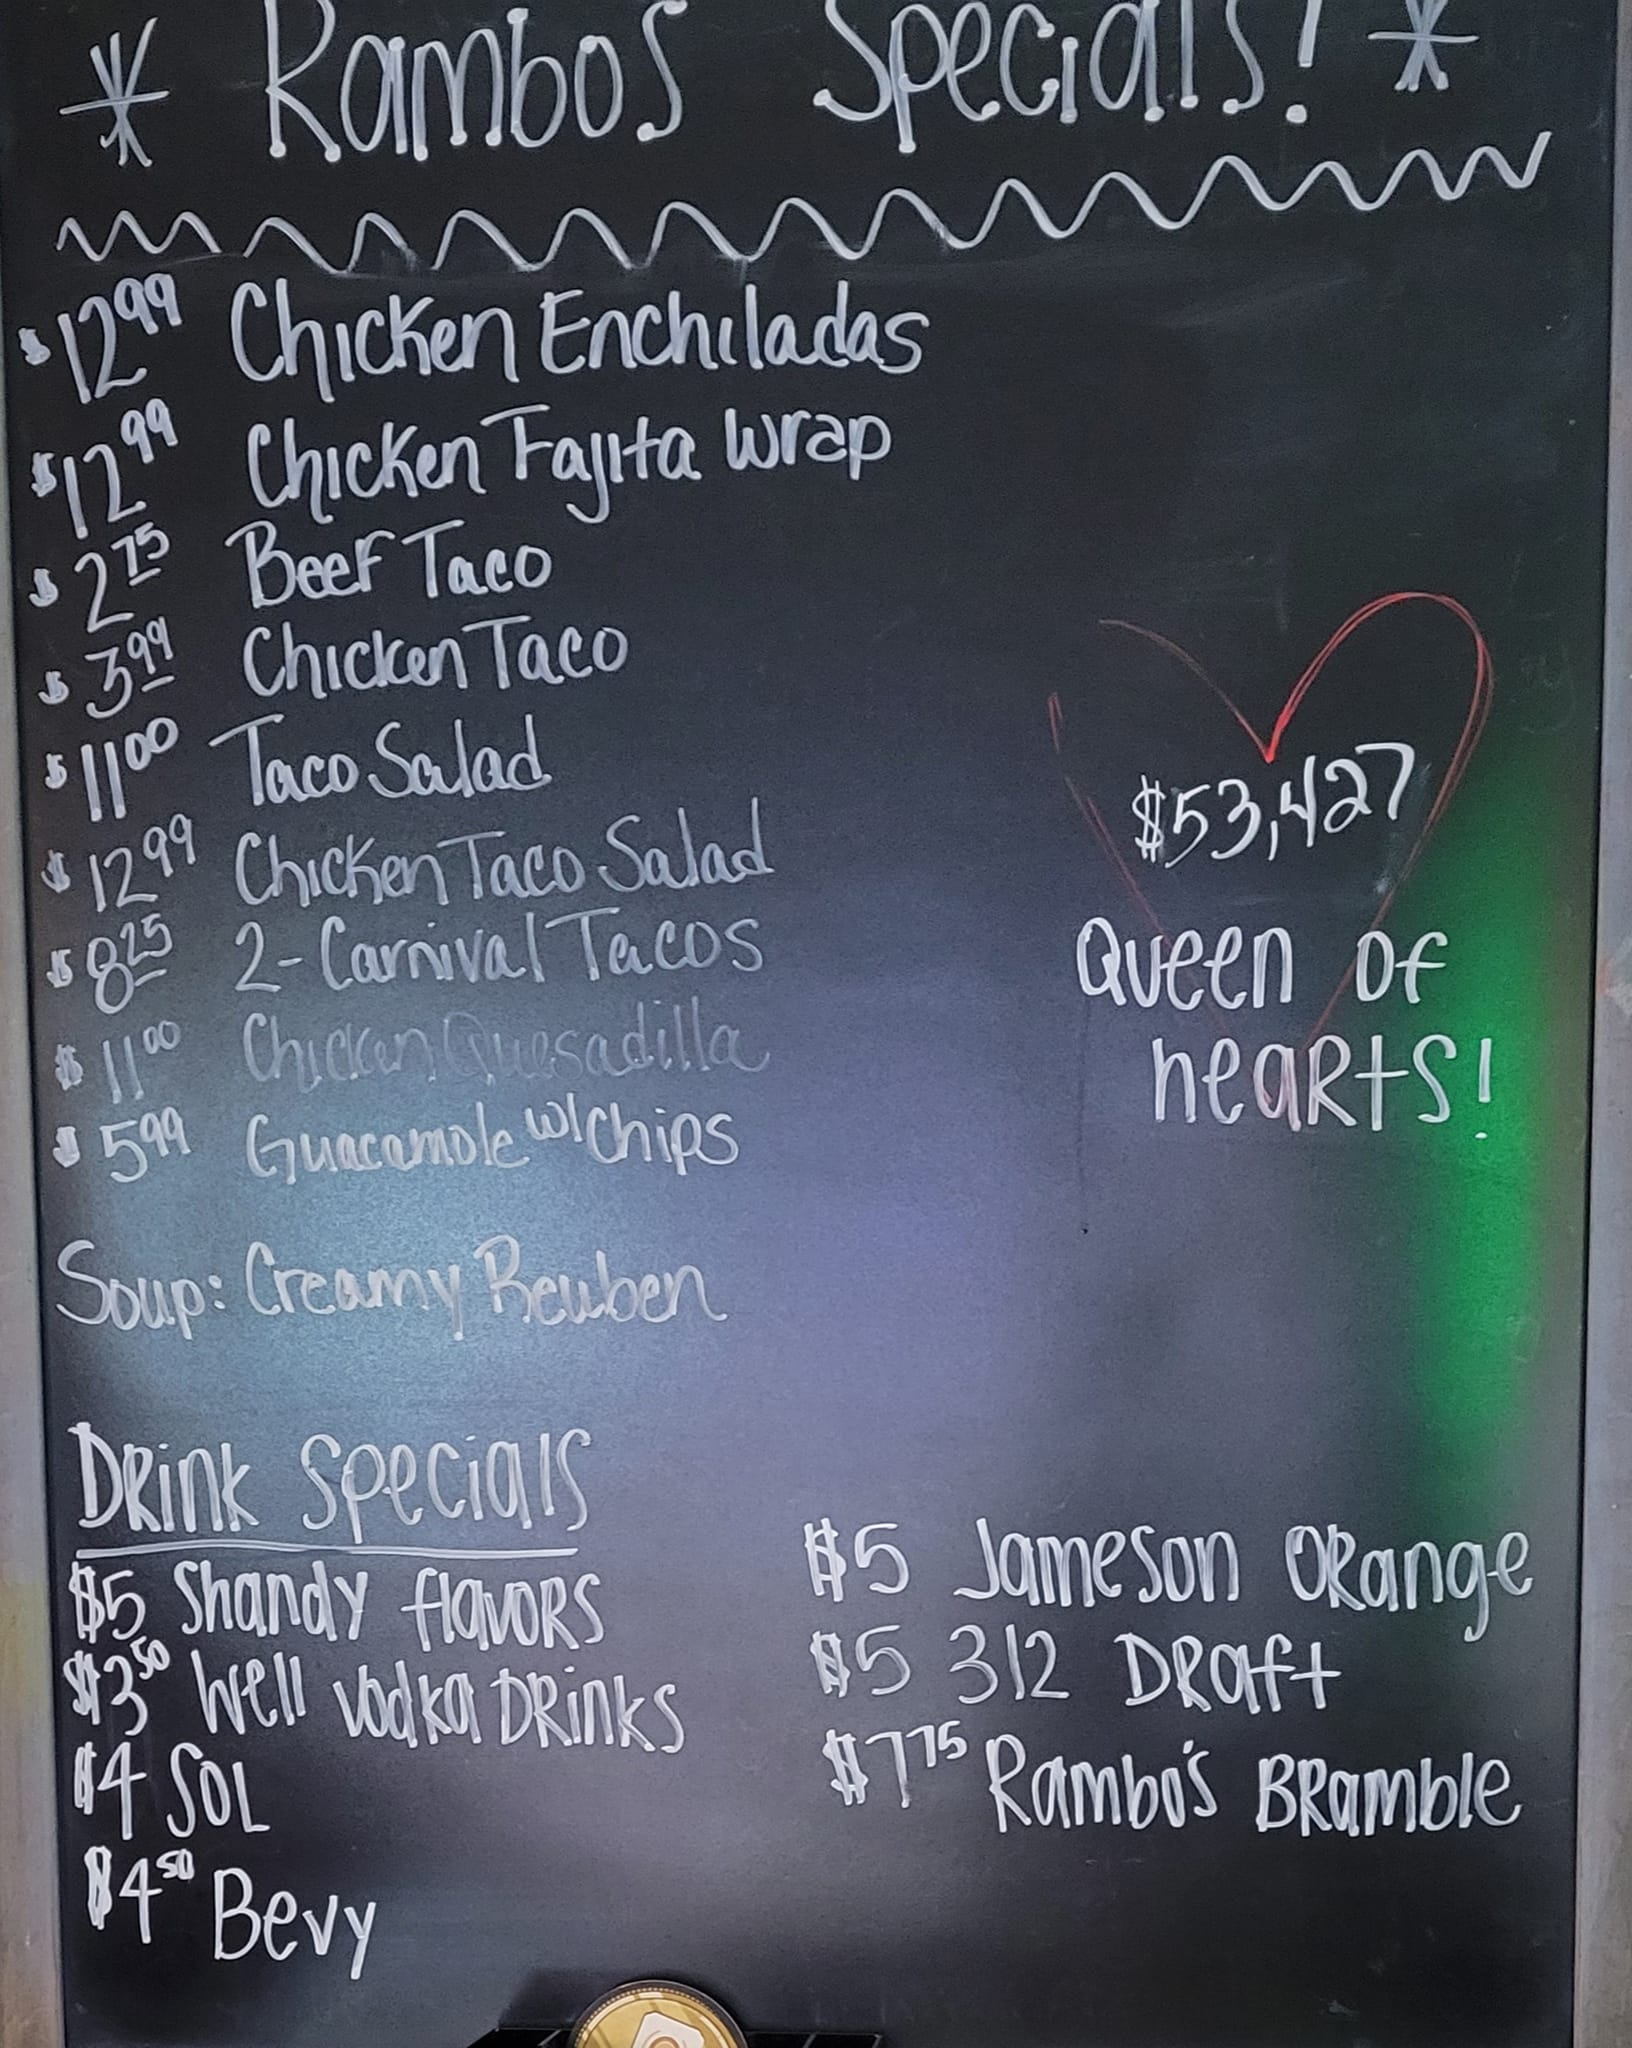 * Rambos Specials! *
$12.99 Chicken Enchiladas
$12.99 Chicken Fajita Wrap
$2.75 Beef Taco
$3.99 Chicken Taco
$11.00 Taco Salad
$12.99 Chicken Taco Salad
$8.25 2-Carnival Tacos
$11.00 Chicken Quesadilla
$5.99 Guacamole w/ Chips
$53,427
Queen of
hearts!
Soup: Creamy Reuben
Drink Specials
$5 Shandy flavors
$3.50 Well Vodka Drinks
$4 SOL
$4.50 Bevy
$5 Jameson Orange
$5 312 Draft
$7.75 Rambo's Bramble